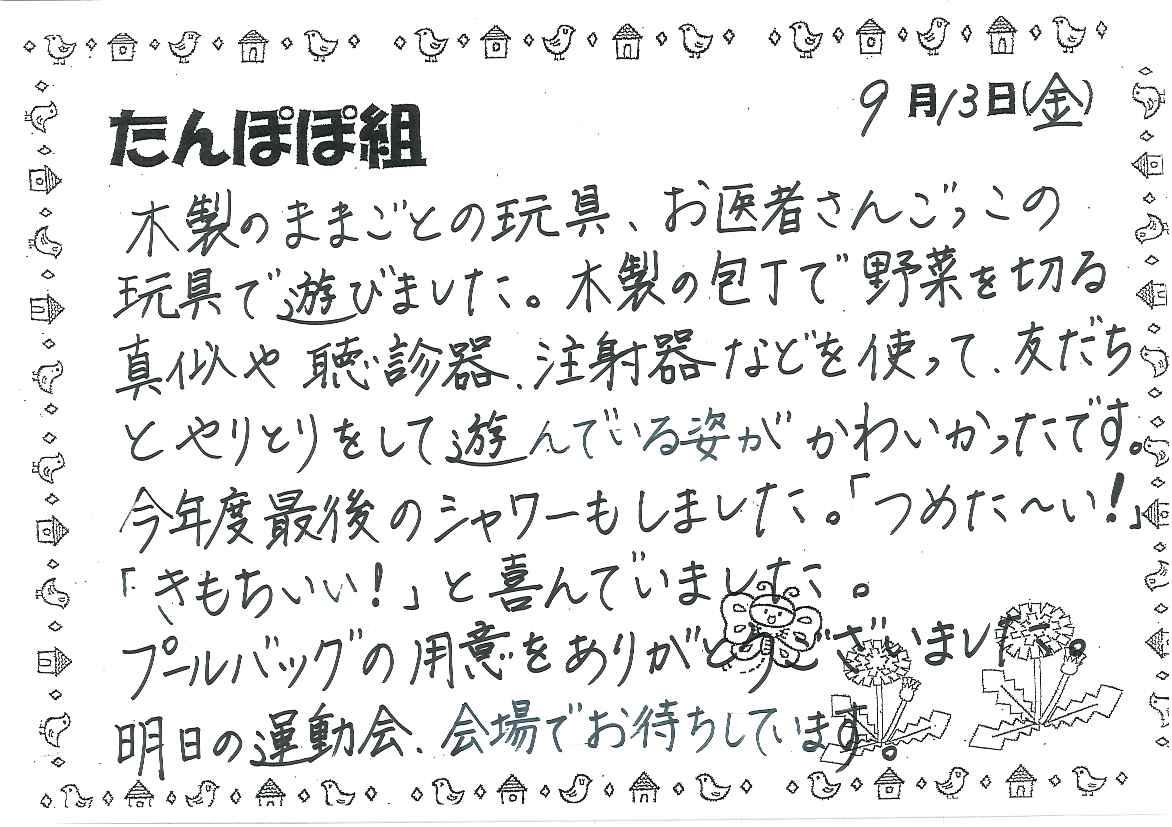 9月13日(金)
たんぽぽ組
木製のままごとの玩具、お医者さんごっこの
玩具で遊びました。木製の包丁で野菜を切る
真似や聴診器、注射器などを使って、友だち
とやりとりをして遊んでいる姿がかわいかったです。
今年度最後のシャワーもしました。「つめた～い!」
「きもちいい!」と喜んでいました。
プールバッグの用意をありがとうございました。
明日の運動会、会場でお待ちしています。